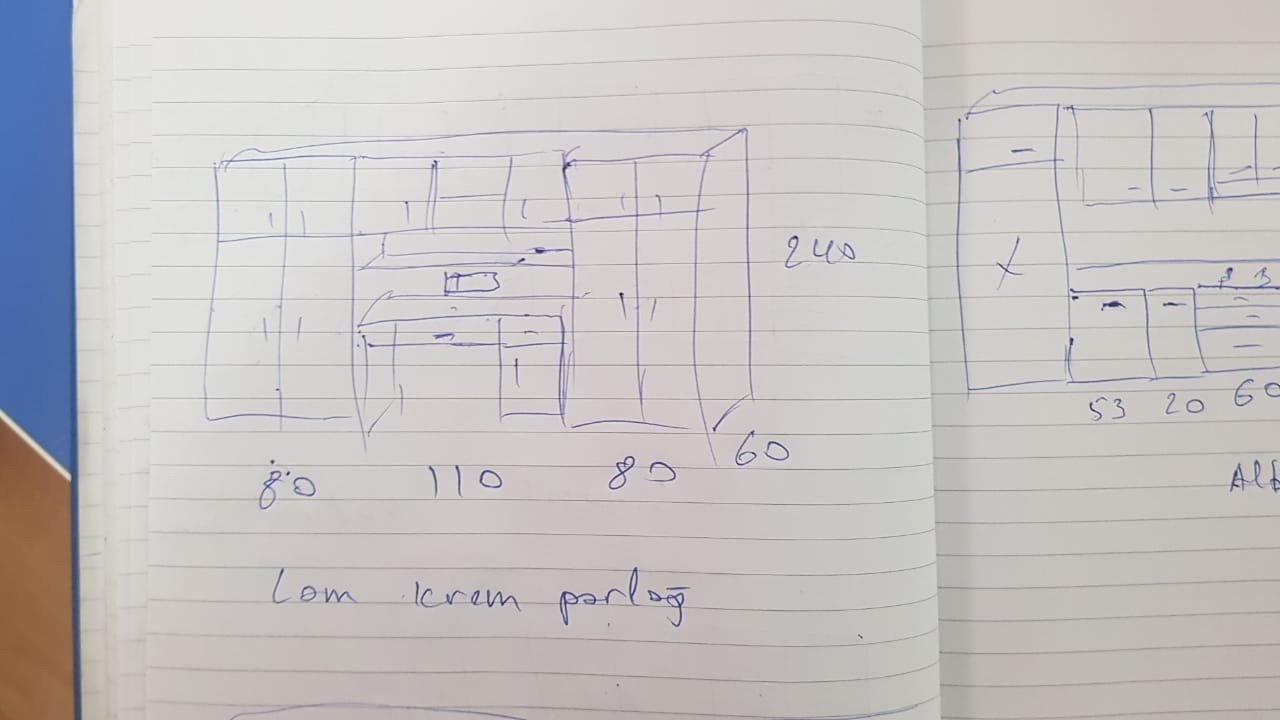 240
60
80 110 80
Lam krem parlağ
53 20 60
Alt